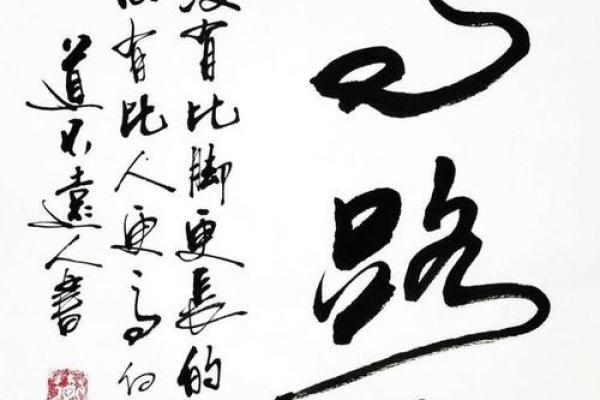 路
没有比脚更長的
有比人更高的
道不遠人書